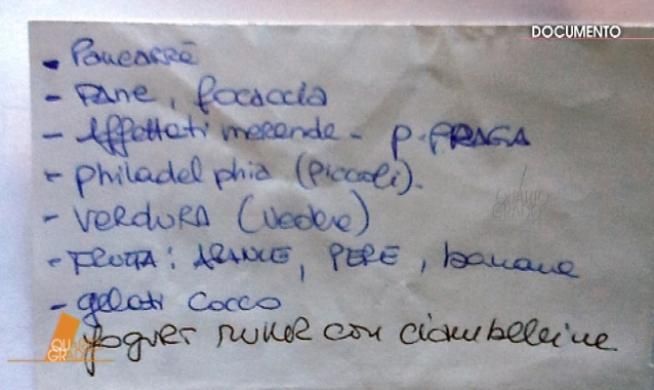 DOCUMENTO
- Pancarrè
- PANE, focaccia
- Affettati merende - P. PRAGA
- philadelphia (piccoli).
- VERDURA (vedere)
- FRUTTA: ARANCE, PERE, banane
- gelati cocco
yogurt MULLER con ciambelline
QUARTO GRADO